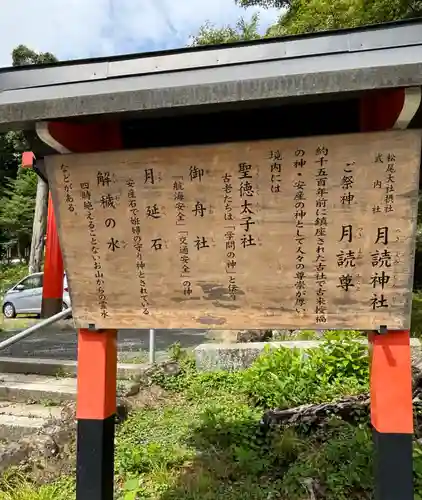 松尾大社摂社
式内社
月読神社
つきよみ
ご祭神 月読尊
約千五百年前に鎮座された古社で古来幸福
の神・安産の神として人々の尊崇が厚い
境内には
聖徳太子社
古老たちは「学問の神」と伝う
御舟社
「航海安全」「交通安全」の神
月延石
安産石で妊婦の守り神とされている
解穢の水
四時絶えることないお山からの霊水
などがある